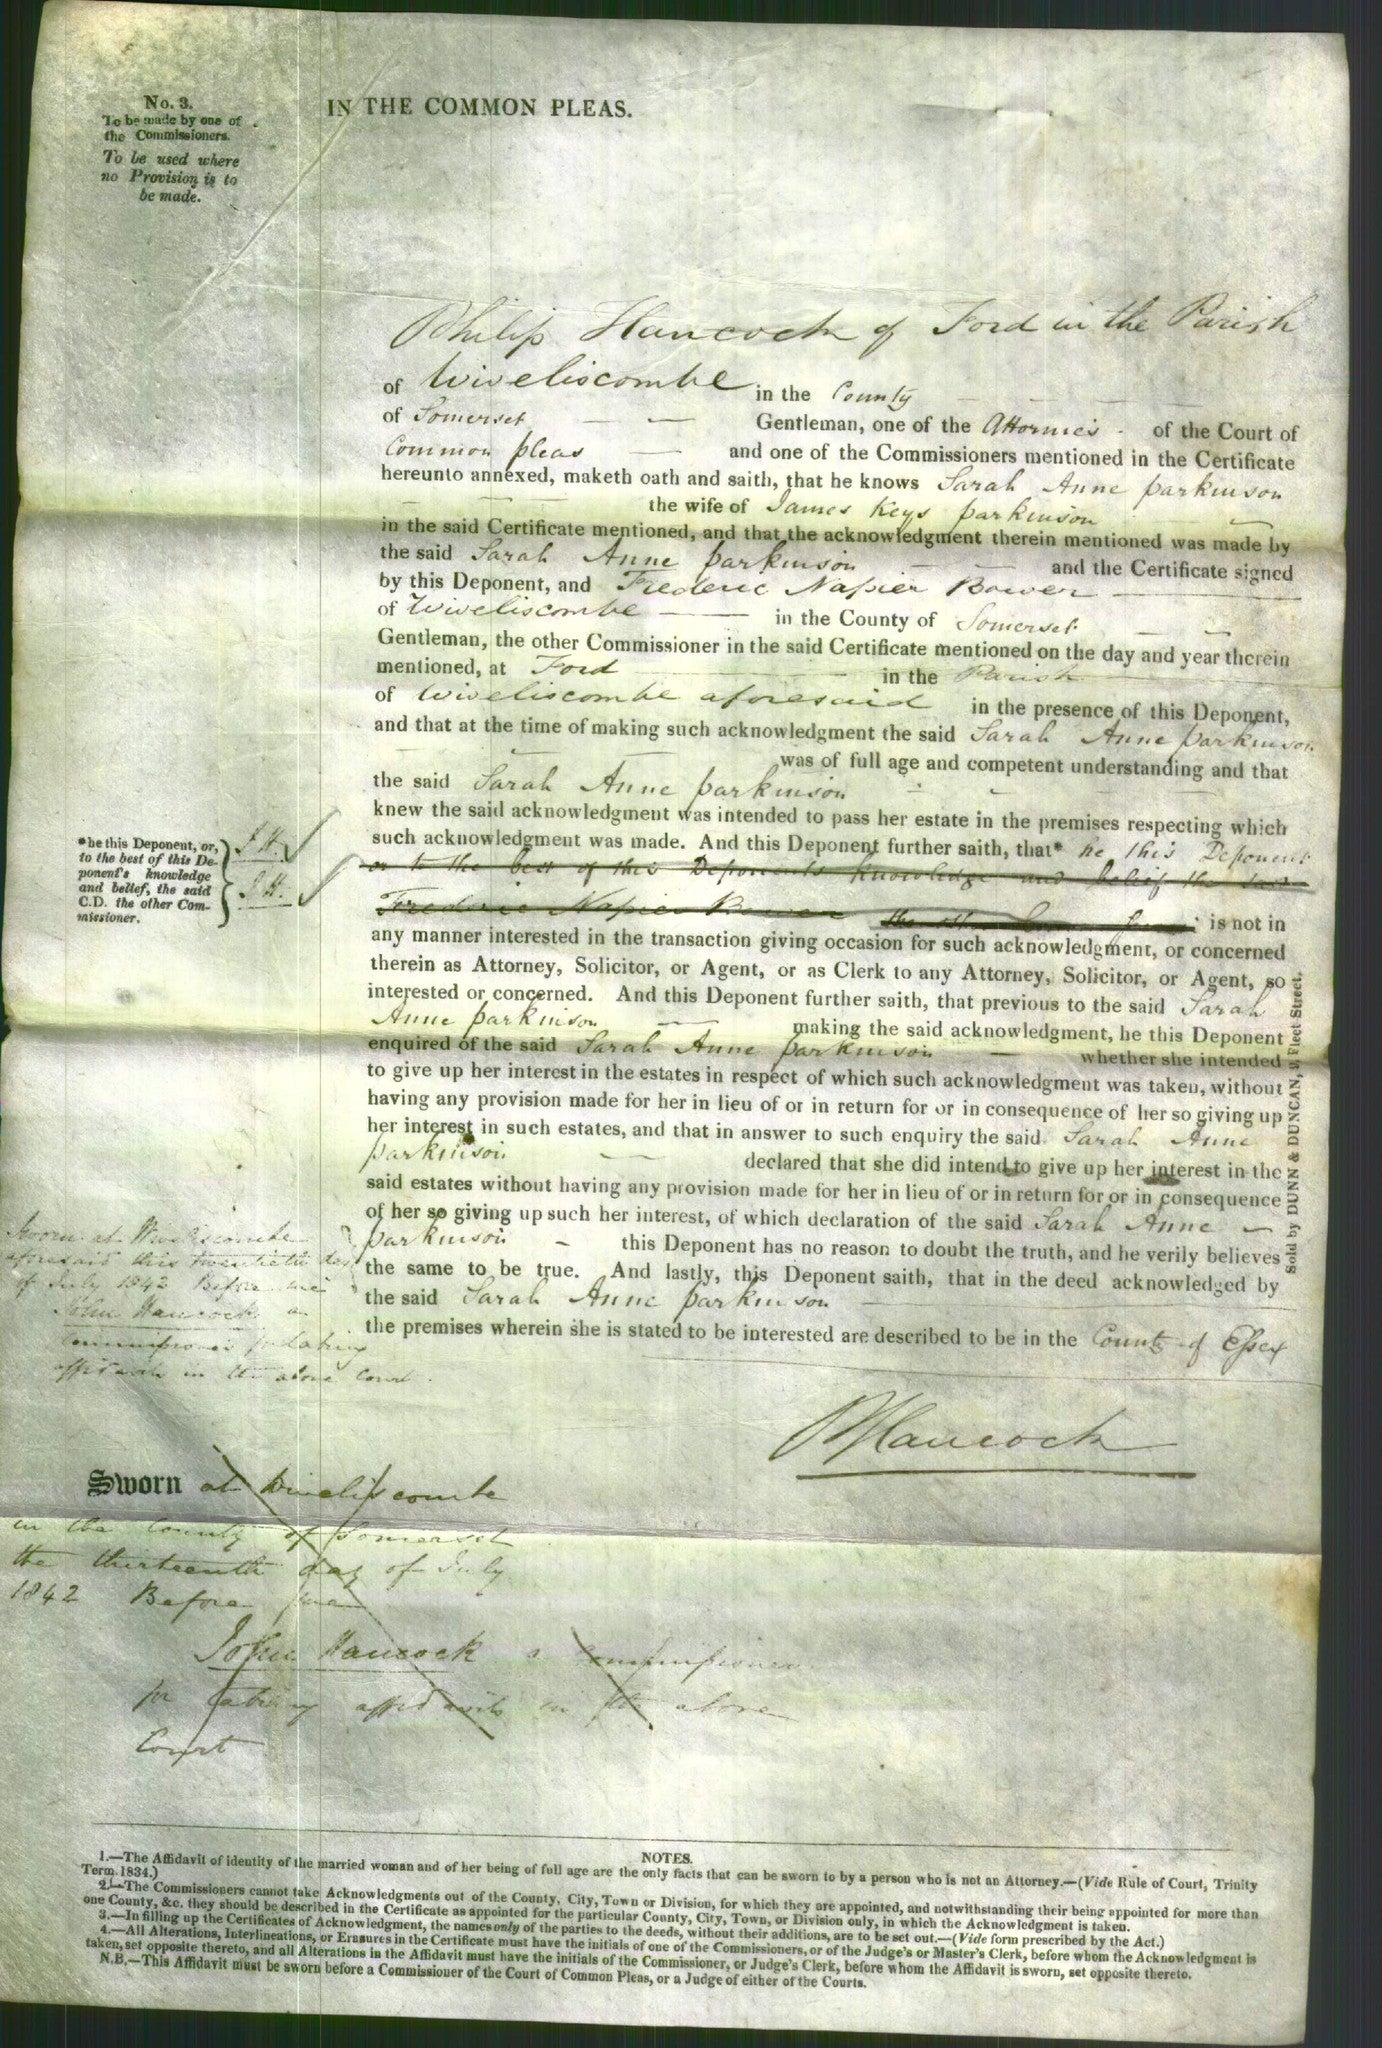 No. 3.
To be made by one of
the Commissioners.
To be used where
no Provision is to
be made.
IN THE COMMON PLEAS.
Philip Hancock of Ford in the Parish
of Wiveliscombe in the County
of Somerset Gentleman, one of the Attornies of the Court of
Common pleas and one of the Commissioners mentioned in the Certificate
hereunto annexed, maketh oath and saith, that he knows Sarah Anne parkinson
the wife of James Keys parkinson
in the said Certificate mentioned, and that the acknowledgment therein mentioned was made by
the said Sarah Anne parkinson and the Certificate signed
by this Deponent, and Frederic Napier Bower
of Wiveliscombe in the County of Somerset
Gentleman, the other Commissioner in the said Certificate mentioned on the day and year therein
mentioned, at Ford in the Parish
of Wiveliscombe aforesaid in the presence of this Deponent,
and that at the time of making such acknowledgment the said Sarah Anne parkinson
was of full age and competent understanding and that
the said Sarah Anne parkinson
knew the said acknowledgment was intended to pass her estate in the premises respecting which
such acknowledgment was made. And this Deponent further saith, that* he this Deponent
or to the best of this Deponents knowledge and belief the said
Frederic Napier Bower the other is not in
any manner interested in the transaction giving occasion for such acknowledgment, or concerned
therein as Attorney, Solicitor, or Agent, or as Clerk to any Attorney, Solicitor, or Agent, so
interested or concerned. And this Deponent further saith, that previous to the said Sarah
Anne parkinson making the said acknowledgment, he this Deponent
enquired of the said Sarah Anne parkinson whether she intended
to give up her interest in the estates in respect of which such acknowledgment was taken, without
having any provision made for her in lieu of or in return for or in consequence of her so giving up
her interest in such estates, and that in answer to such enquiry the said Sarah Anne
parkinson declared that she did intend to give up her interest in the
said estates without having any provision made for her in lieu of or in return for or in consequence
of her so giving up such her interest, of which declaration of the said Sarah Anne
parkinson this Deponent has no reason to doubt the truth, and he verily believes
the same to be true. And lastly, this Deponent saith, that in the deed acknowledged by
the said Sarah Anne parkinson
the premises wherein she is stated to be interested are described to be in the County of Essex
*he this Deponent, or,
to the best of this De-
ponent's knowledge
and belief, the said
C.D. the other Com-
missioner.
J H.
J H.
Sold by DUNN & DUNCAN, 9, Fleet Street.
Sworn at Wiveliscombe
aforesaid this twentieth day
of July 1842 Before me
John Hancock a
Commissioner for taking
affidavits in the above Court.
P Hancock
Sworn at Wiveliscombe
in the County of Somerset
the thirteenth day of July
1842 Before me
John Hancock a Commissioner
for taking affidavits in the above
Court
NOTES.
1.—The Affidavit of identity of the married woman and of her being of full age are the only facts that can be sworn to by a person who is not an Attorney.—(Vide Rule of Court, Trinity
Term 1834.)
2.—The Commissioners cannot take Acknowledgments out of the County, City, Town or Division, for which they are appointed, and notwithstanding their being appointed for more than
one County, &c. they should be described in the Certificate as appointed for the particular County, City, Town, or Division only, in which the Acknowledgment is taken.
3.—In filling up the Certificates of Acknowledgment, the names only of the parties to the deeds, without their additions, are to be set out.—(Vide form prescribed by the Act.)
4.—All Alterations, Interlineations, or Erasures in the Certificate must have the initials of one of the Commissioners, or of the Judge's or Master's Clerk, before whom the Acknowledgment is
taken, set opposite thereto, and all Alterations in the Affidavit must have the initials of the Commissioner, or Judge's Clerk, before whom the Affidavit is sworn, set opposite thereto.
N.B.—This Affidavit must be sworn before a Commissioner of the Court of Common Pleas, or a Judge of either of the Courts.